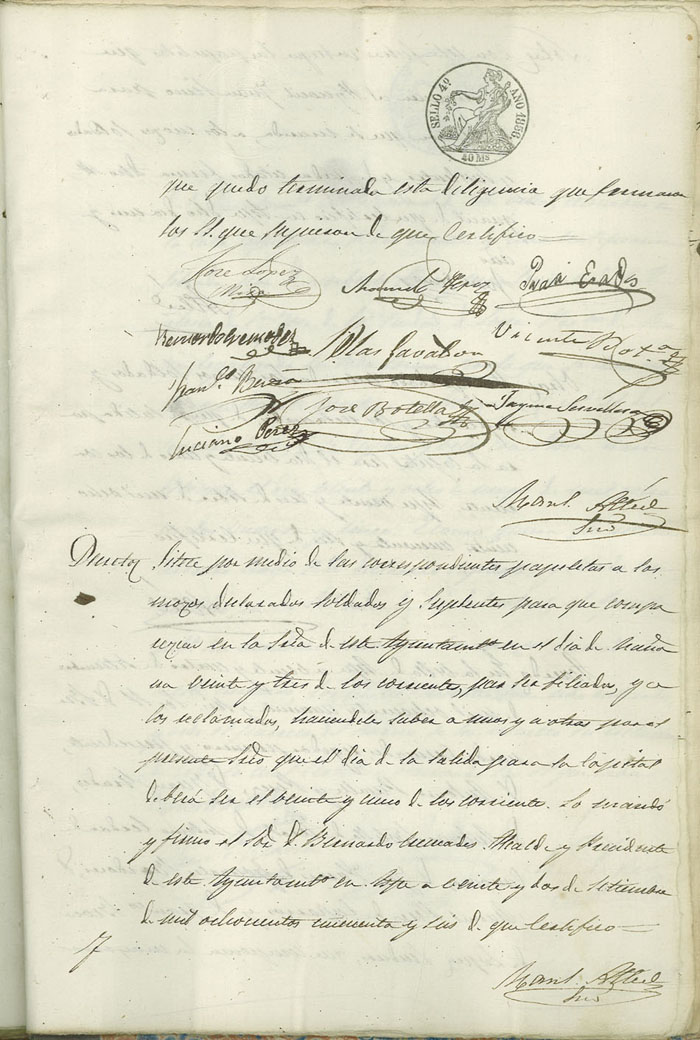 SELLO 4º AÑO 1856.
40 Ms
que quedo terminada esta diligencia que firmaron
los SS. que supieron de que Certifico
José Lopez
Mira Manuel Perez Juan Erades
Bernardo Cremades Blas Gavaldon Vicente Botª
Franco Berna
José Botella
Luciano Perez
Manl
Srio
Decreto, Citese por medio de las correspondientes papeletas a los
mozos declarados soldados y Suplentes para que compa
rezcan en la Sala de este Ayuntamto en el dia de maña
na veinte y tres de los corrientes, para ser filiados, y a
los reclamados, haciendole saber a unos y a otros por el
presente Srio que el dia de la salida para la Capital
deberá ser el veinte y cinco de los corriente. Lo mandó
y firmo el Sor D. Bernardo Cremades Alcalde y Presidente
de este Ayuntamto en Aspe a veinte y dos de Setiembre
de mil ochocientos cincuenta y seis de que Certifico
Manl
Srio